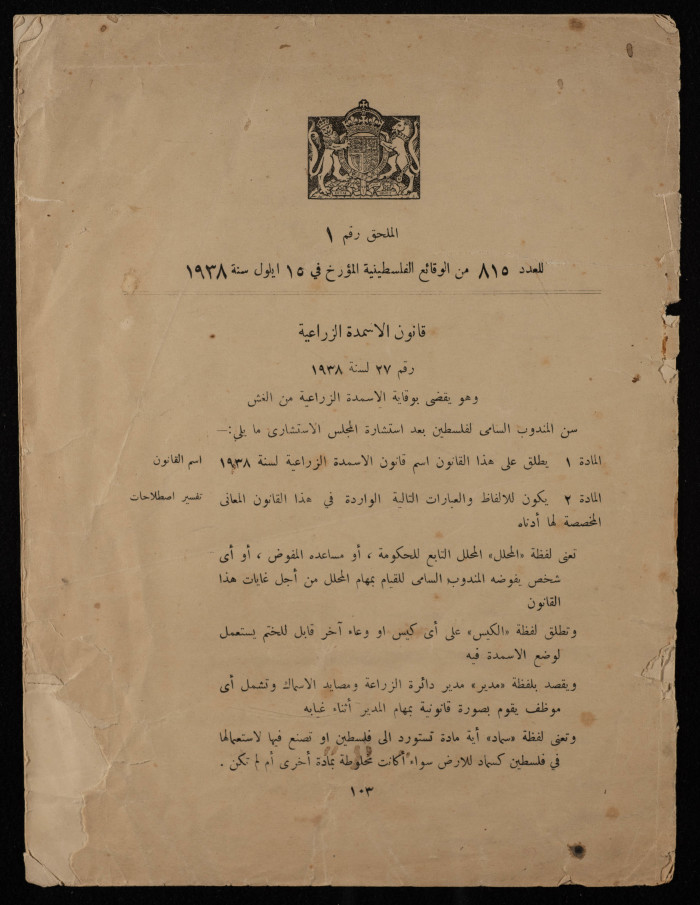 الملحق رقم ١
للعدد ٨١٥ من الوقائع الفلسطينية المؤرخ في ١٥ ايلول سنة ١٩٣٨
قانون الاسمدة الزراعية
رقم ٢٧ لسنة ١٩٣٨
وهو يقضى بوقاية الاسمدة الزراعية من الغش
سن المندوب السامى لفلسطين بعد استشارة المجلس الاستشارى ما يلي:—
المادة ١ يطلق على هذا القانون اسم قانون الاسمدة الزراعية لسنة ١٩٣٨
اسم القانون
المادة ٢ يكون للالفاظ والعبارات التالية الواردة في هذا القانون المعانى
تفسير اصطلاحات
المخصصة لها أدناه
تعنى لفظة «المحلل» المحلل التابع للحكومة ، أو مساعده المفوض ، أو أى
شخص يفوضه المندوب السامى للقيام بمهام المحلل من أجل غايات هذا
القانون
وتطلق لفظة «الكيس» على أى كيس او وعاء آخر قابل للختم يستعمل
لوضع الاسمدة فيه
ويقصد بلفظة «مدير» مدير دائرة الزراعة ومصايد الاسماك وتشمل أى
موظف يقوم بصورة قانونية بمهام المدير أثناء غيابه
وتعنى لفظة «سماد» أية مادة تستورد الى فلسطين او تصنع فيها لاستعمالها
في فلسطين كسماد للارض سواء أكانت مخلوطة بمادة أخرى أم لم تكن .
١٠٣